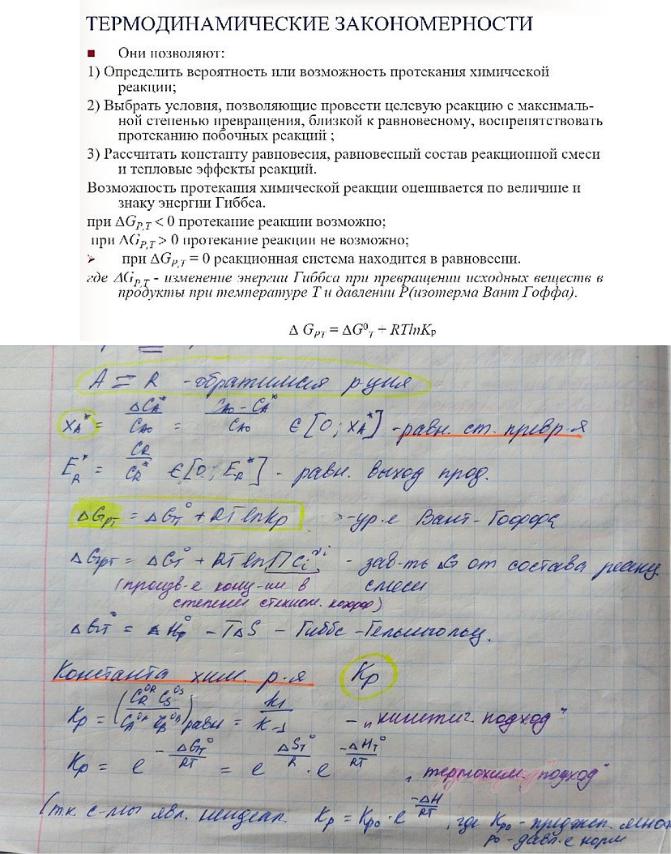 ТЕРМОДИНАМИЧЕСКИЕ ЗАКОНОМЕРНОСТИ
■ Они позволяют:
1) Определить вероятность или возможность протекания химической
реакции;
2) Выбрать условия, позволяющие провести целевую реакцию с максималь-
ной степенью превращения, близкой к равновесному, воспрепятствовать
протеканию побочных реакций ;
3) Рассчитать константу равновесия, равновесный состав реакционной смеси
и тепловые эффекты реакций.
Возможность протекания химической реакции оценивается по величине и
знаку энергии Гиббса.
при ΔG_P,T < 0 протекание реакции возможно;
при ΔG_P,T > 0 протекание реакции не возможно;
➢ при ΔG_P,T = 0 реакционная система находится в равновесии.
где ΔG_P,T - изменение энергии Гиббса при превращении исходных веществ в
продукты при температуре T и давлении P(изотерма Вант Гоффа).
Δ G_PT = ΔG⁰_T + RTlnK_P
A ⇄ R - обратимая р-ция
x_A* = ΔC_A*/C_A0 = (C_A0 - C_A*)/C_A0 ∈ [0; x_A*] - равн. ст. превр-я
E_R* = C_R/C_R* ∈ [0; E_R*] - равн. выход прод.
ΔG_PT = ΔG_T° + RT ln K_P - ур-е Вант-Гоффа
ΔG_PT = ΔG_T° + RT ln ΠC_i^νi - зав-ть ΔG от состава реакц.
(произв-е конц-ии в смеси
степени стехиом. коэфф)
ΔG_T° = ΔH_P° - TΔS - Гиббс-Гельмгольц.
Константа хим. р-я K_P
K_P = (C_R^νR C_S^νS / C_A^νA C_B^νB) равн = k_1/k_-1 - „кинетич. подход"
K_P = e^(-ΔG_T°/RT) = e^(ΔS_T°/R) · e^(-ΔH_T°/RT) „термохим. подход"
(т.к. с-мы явл. неидеал. K_P = K_P0 · e^(-ΔH/RT), где K_P0 - предэксп. множ
P0 - давл-е норм